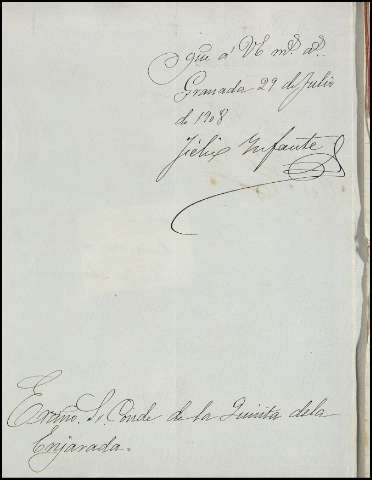 gue á VE m.s a.s
Granada 29 de Julio
de 1908
Félix Infante
Excmo. S. Conde de la Quinta dela
Enjarada.